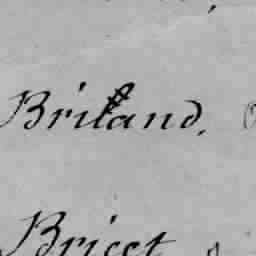 Briland.
Bricet